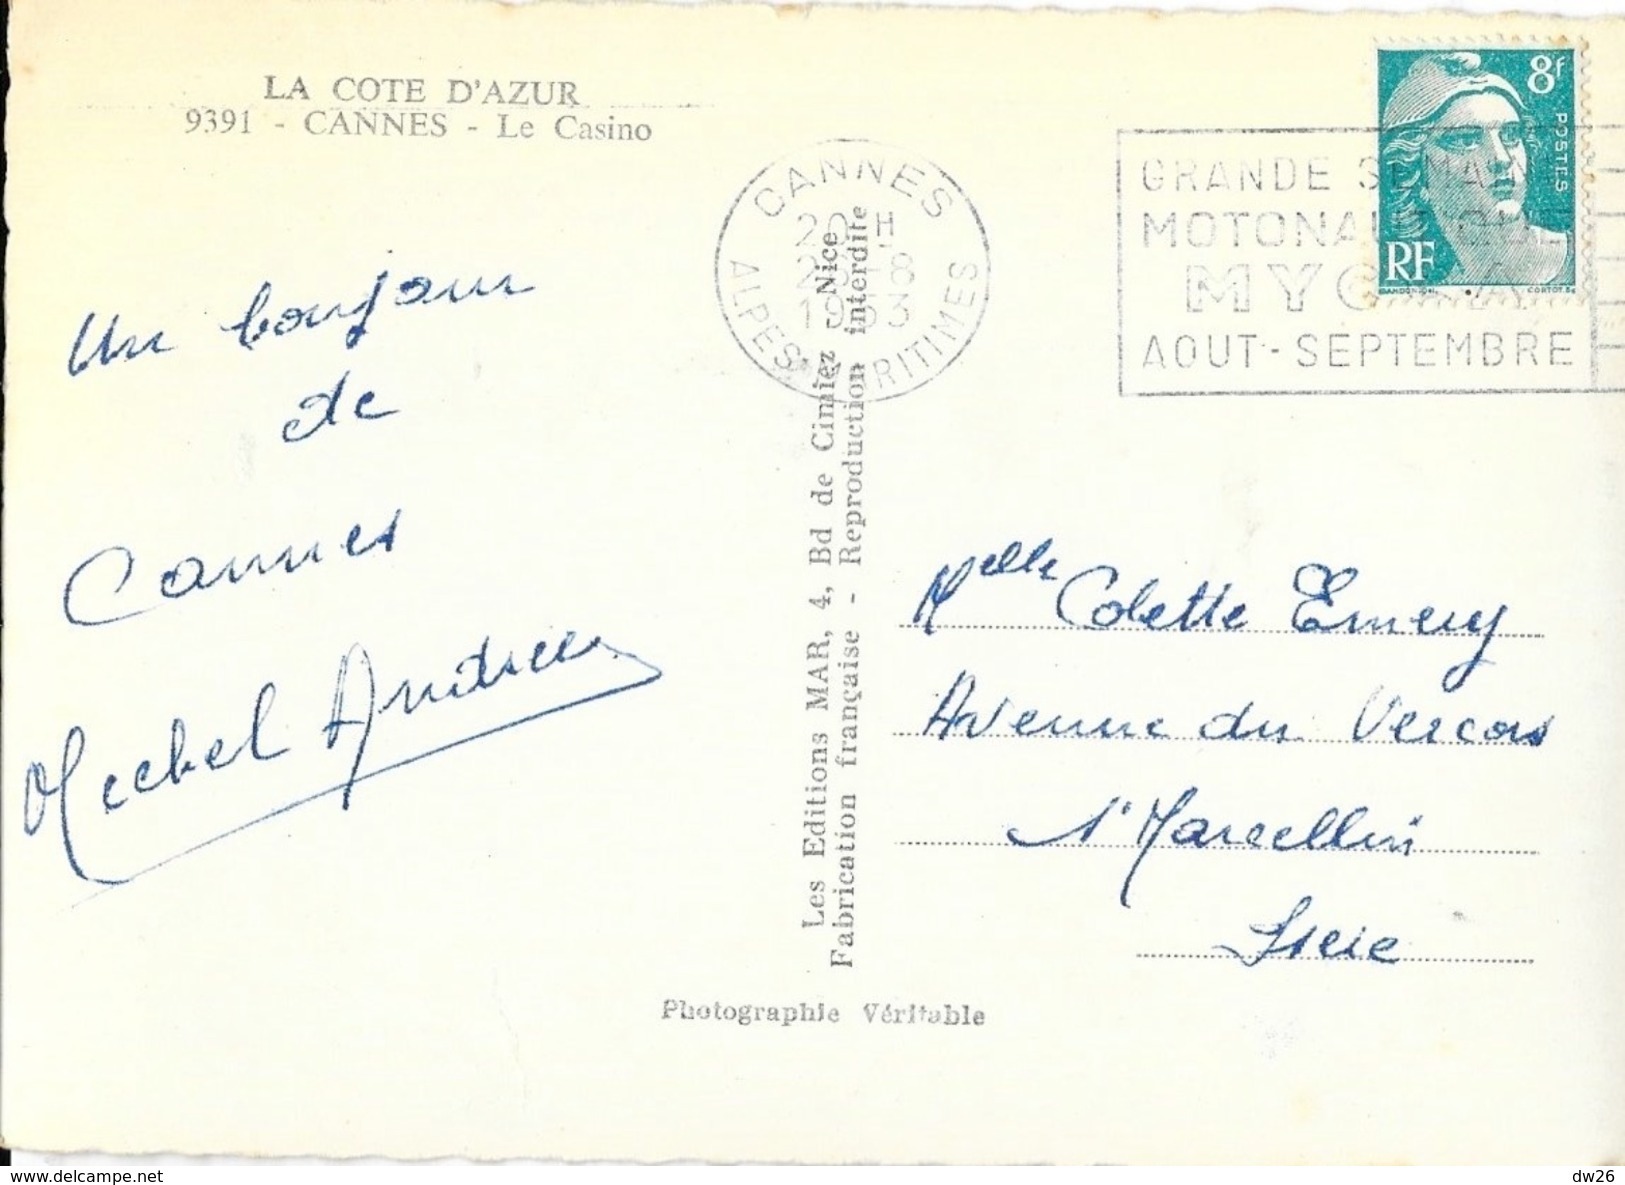 LA COTE D'AZUR
9391 - CANNES - Le Casino
Un bonjour
de
Cannes
Michel Andrieu
CANNES
20 H
-8
1953
ALPES MARITIMES
GRANDE SEMAINE
MOTONAUTIQUE
AOUT - SEPTEMBRE
8f
POSTES
RF
GANDON DEL.
CORTOT SC
Les Editions MAR, 4, Bd de Cimiez - Nice
Fabrication française - Reproduction interdite
Melle Colette Emery
Avenue du Vercors
St Marcellin
Isere
Photographie Véritable
Delcampe.net
dw26